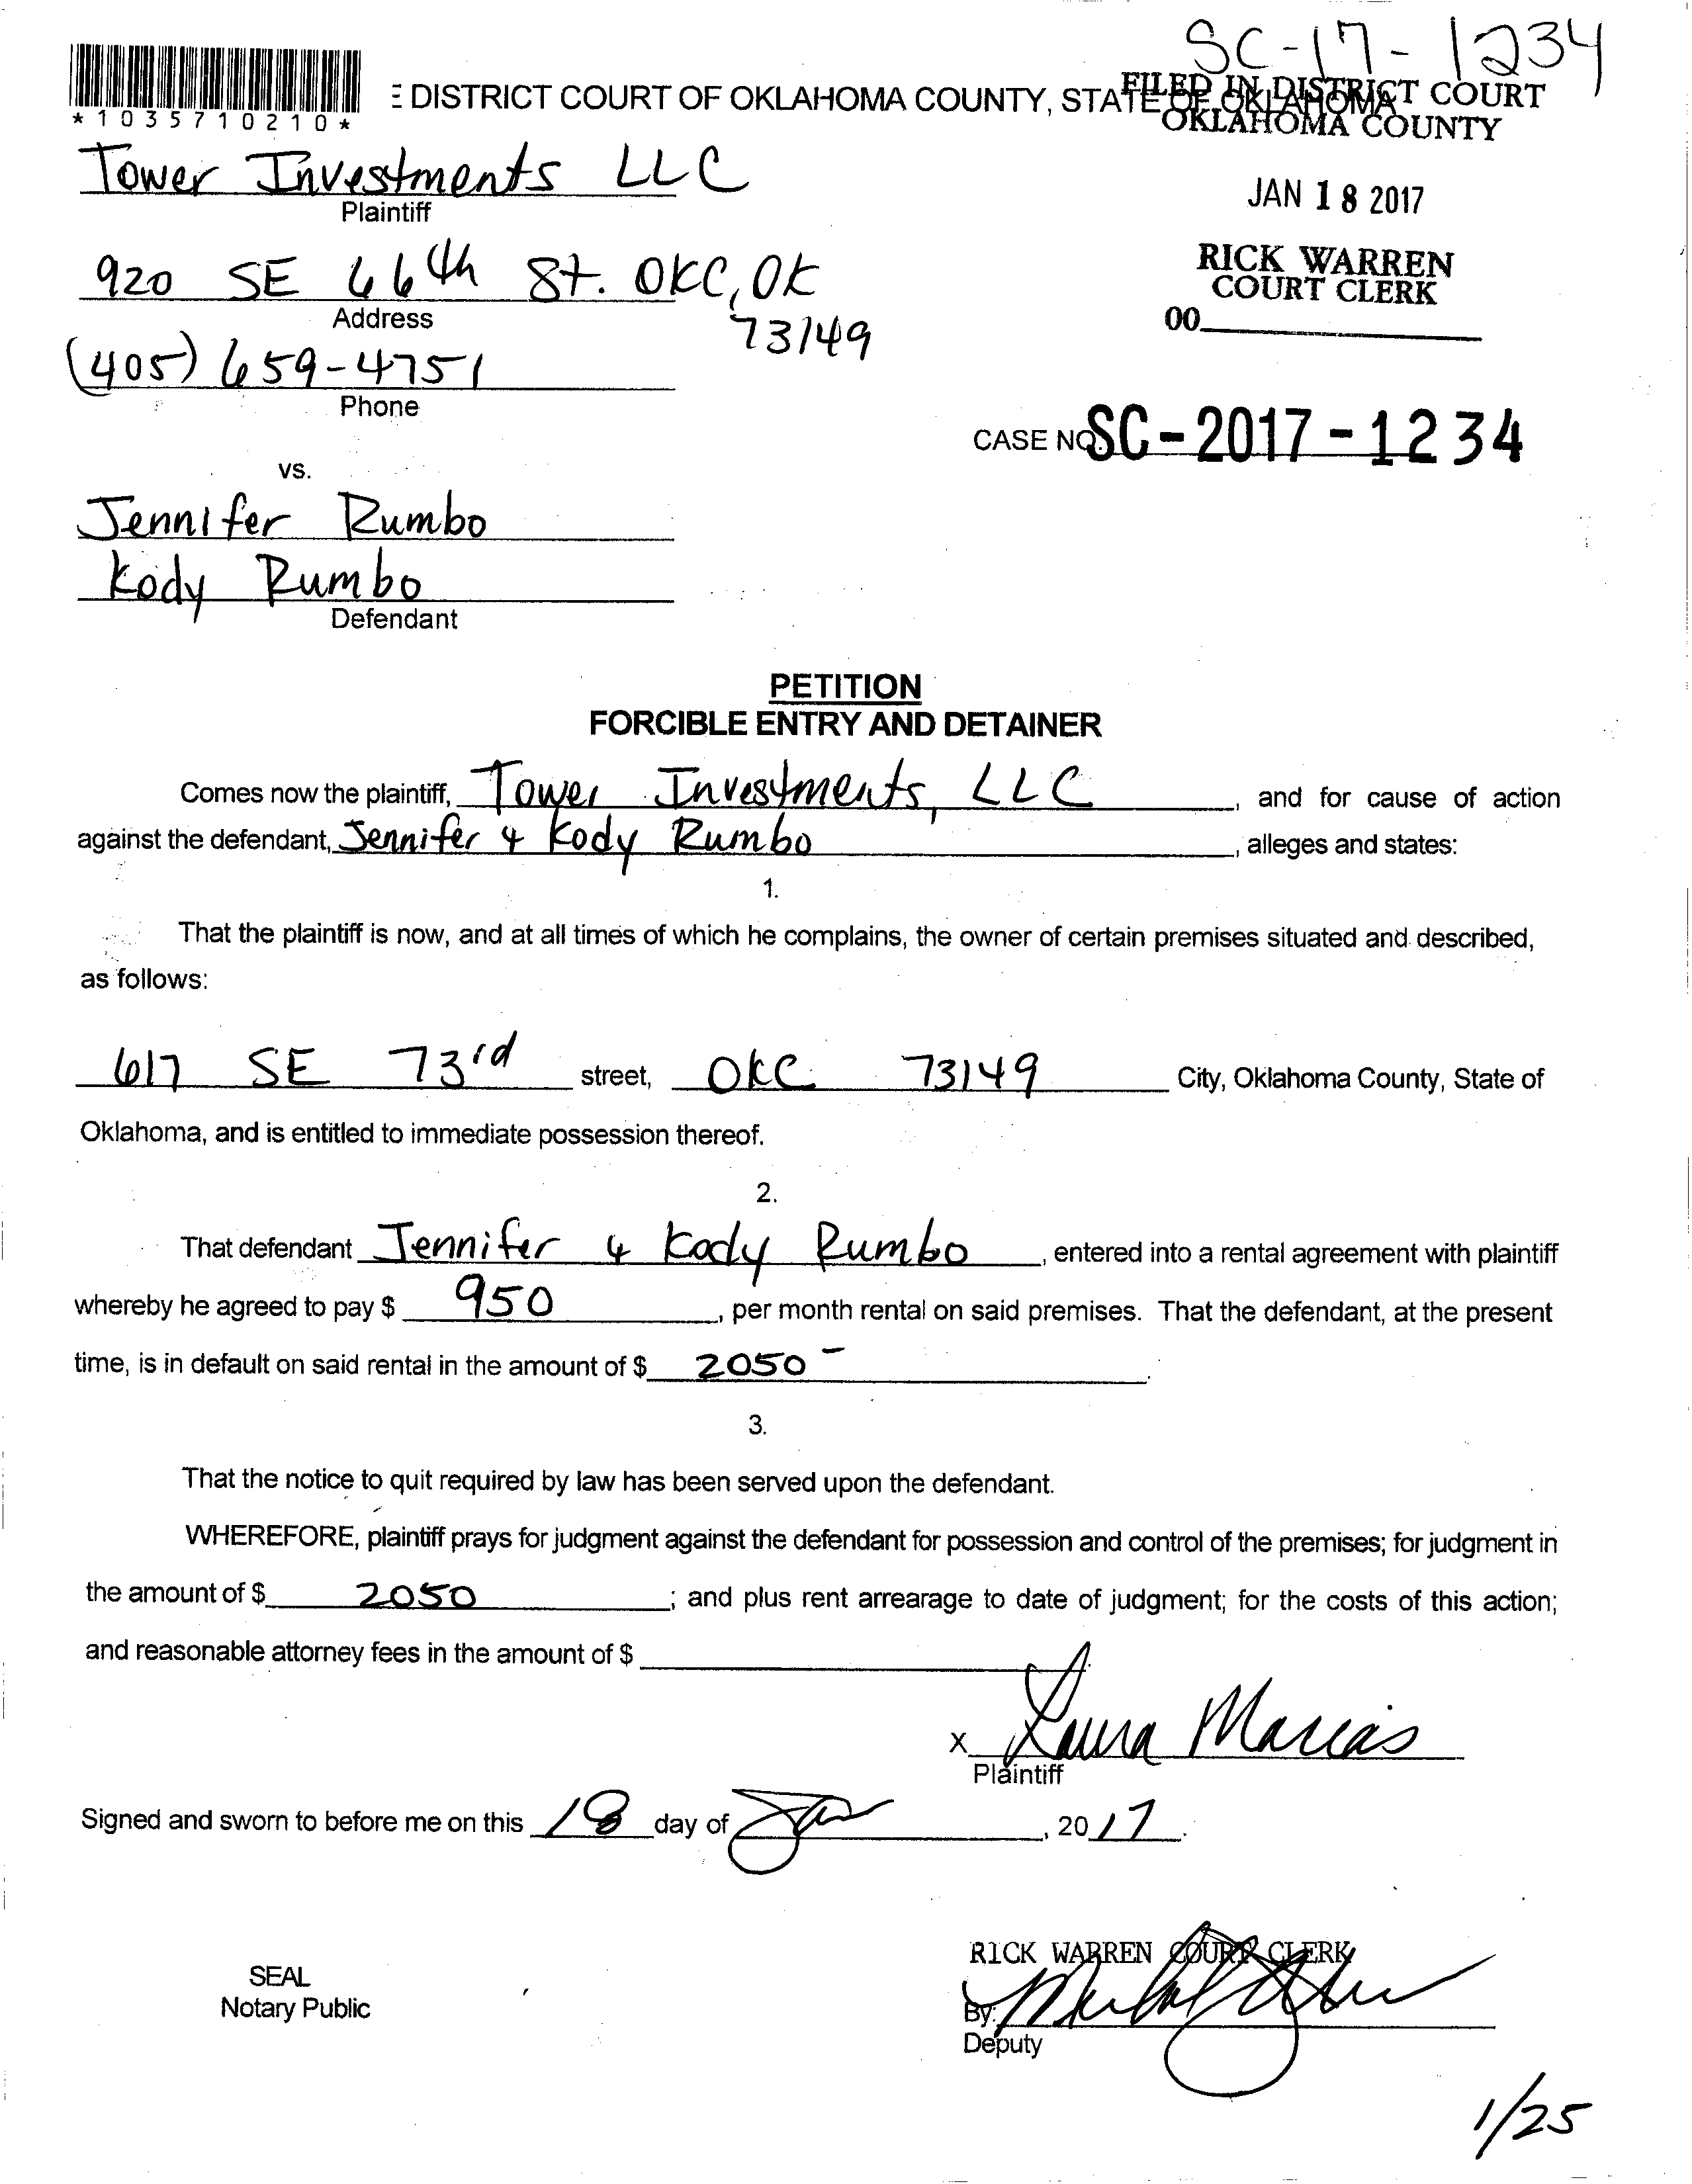 SC-17-1234
DISTRICT COURT OF OKLAHOMA COUNTY, STATE OF OKLAHOMA
FILED IN DISTRICT COURT
OKLAHOMA COUNTY
*1035710210*
Tower Investments LLC
Plaintiff
JAN 18 2017
920 SE 66th St. OKC, OK
73149
Address
RICK WARREN
COURT CLERK
00
(405) 659-4751
Phone
CASE NO. SC-2017-1234
vs.
Jennifer Rumbo
Kody Rumbo
Defendant
PETITION
FORCIBLE ENTRY AND DETAINER
Comes now the plaintiff, Tower Investments, LLC, and for cause of action
against the defendant, Jennifer & Kody Rumbo, alleges and states:
1.
That the plaintiff is now, and at all times of which he complains, the owner of certain premises situated and described,
as follows:
617 SE 73rd street, OKC 73149 City, Oklahoma County, State of
Oklahoma, and is entitled to immediate possession thereof.
2.
That defendant Jennifer & Kody Rumbo, entered into a rental agreement with plaintiff
whereby he agreed to pay $ 950, per month rental on said premises. That the defendant, at the present
time, is in default on said rental in the amount of $ 2050-.
3.
That the notice to quit required by law has been served upon the defendant.
WHEREFORE, plaintiff prays for judgment against the defendant for possession and control of the premises; for judgment in
the amount of $ 2050; and plus rent arrearage to date of judgment; for the costs of this action;
and reasonable attorney fees in the amount of $
x Laura Macias
Plaintiff
Signed and sworn to before me on this 18 day of Jan, 2017.
RICK WARREN COURT CLERK
SEAL
Notary Public
By:
Deputy
1/25